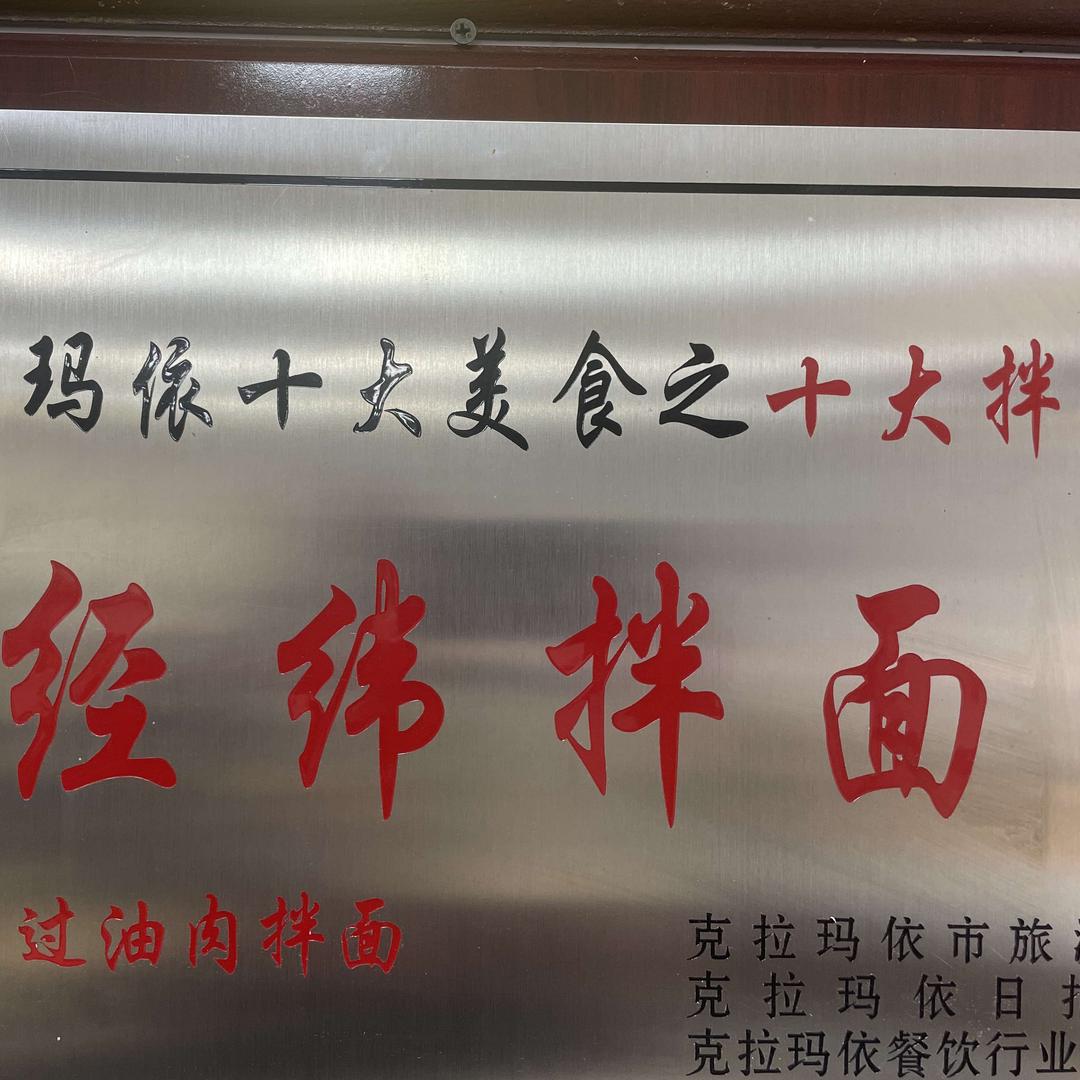 玛依十大美食之十大拌
经纬拌面
过油肉拌面
克拉玛依市旅
克拉玛依日
克拉玛依餐饮行业